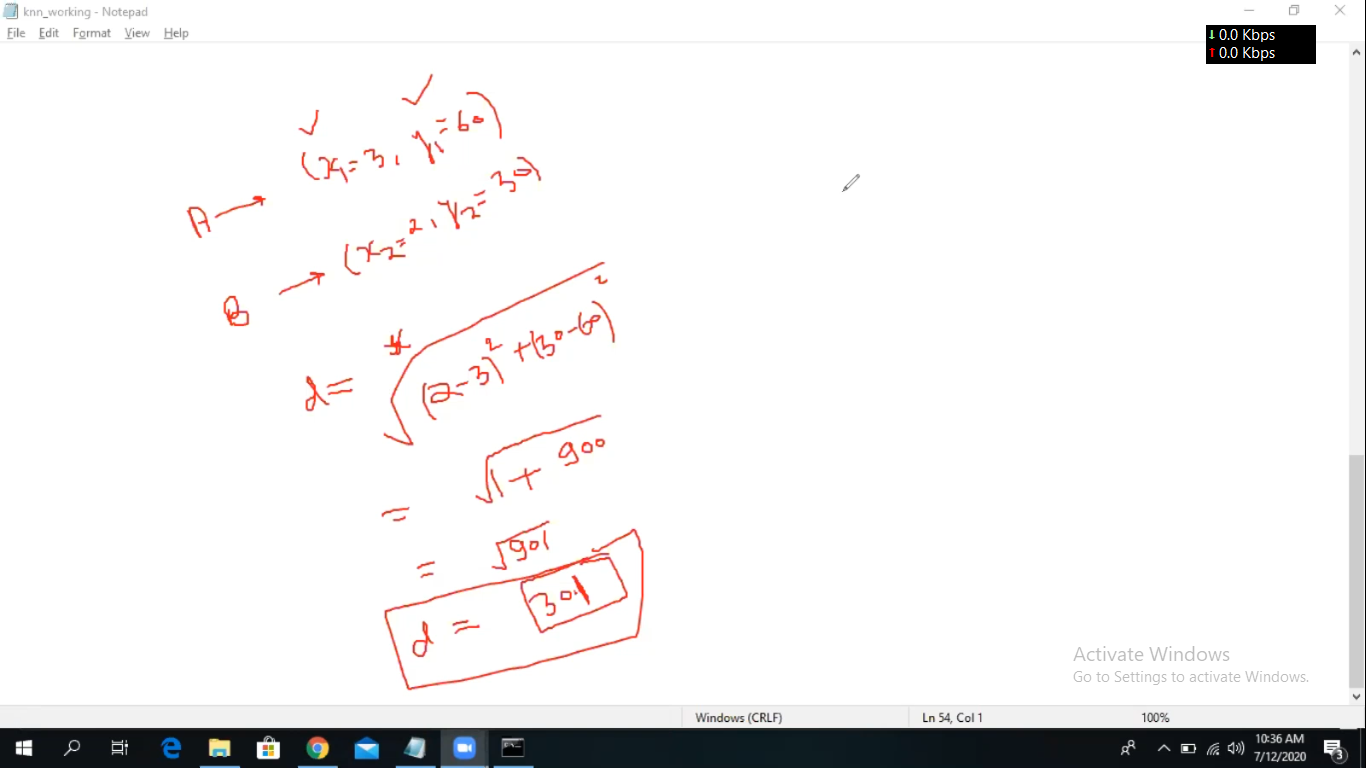 knn_working - Notepad
File Edit Format View Help
↓ 0.0 Kbps
↑ 0.0 Kbps
A → (x₁=3, y₁=60)
B → (x₂=2, y₂=30)
d= √(2-3)² + (30-60)²
= √1 + 900
= √901
d = 30.1
Activate Windows
Go to Settings to activate Windows.
Windows (CRLF) Ln 54, Col 1 100%
10:36 AM
7/12/2020
3